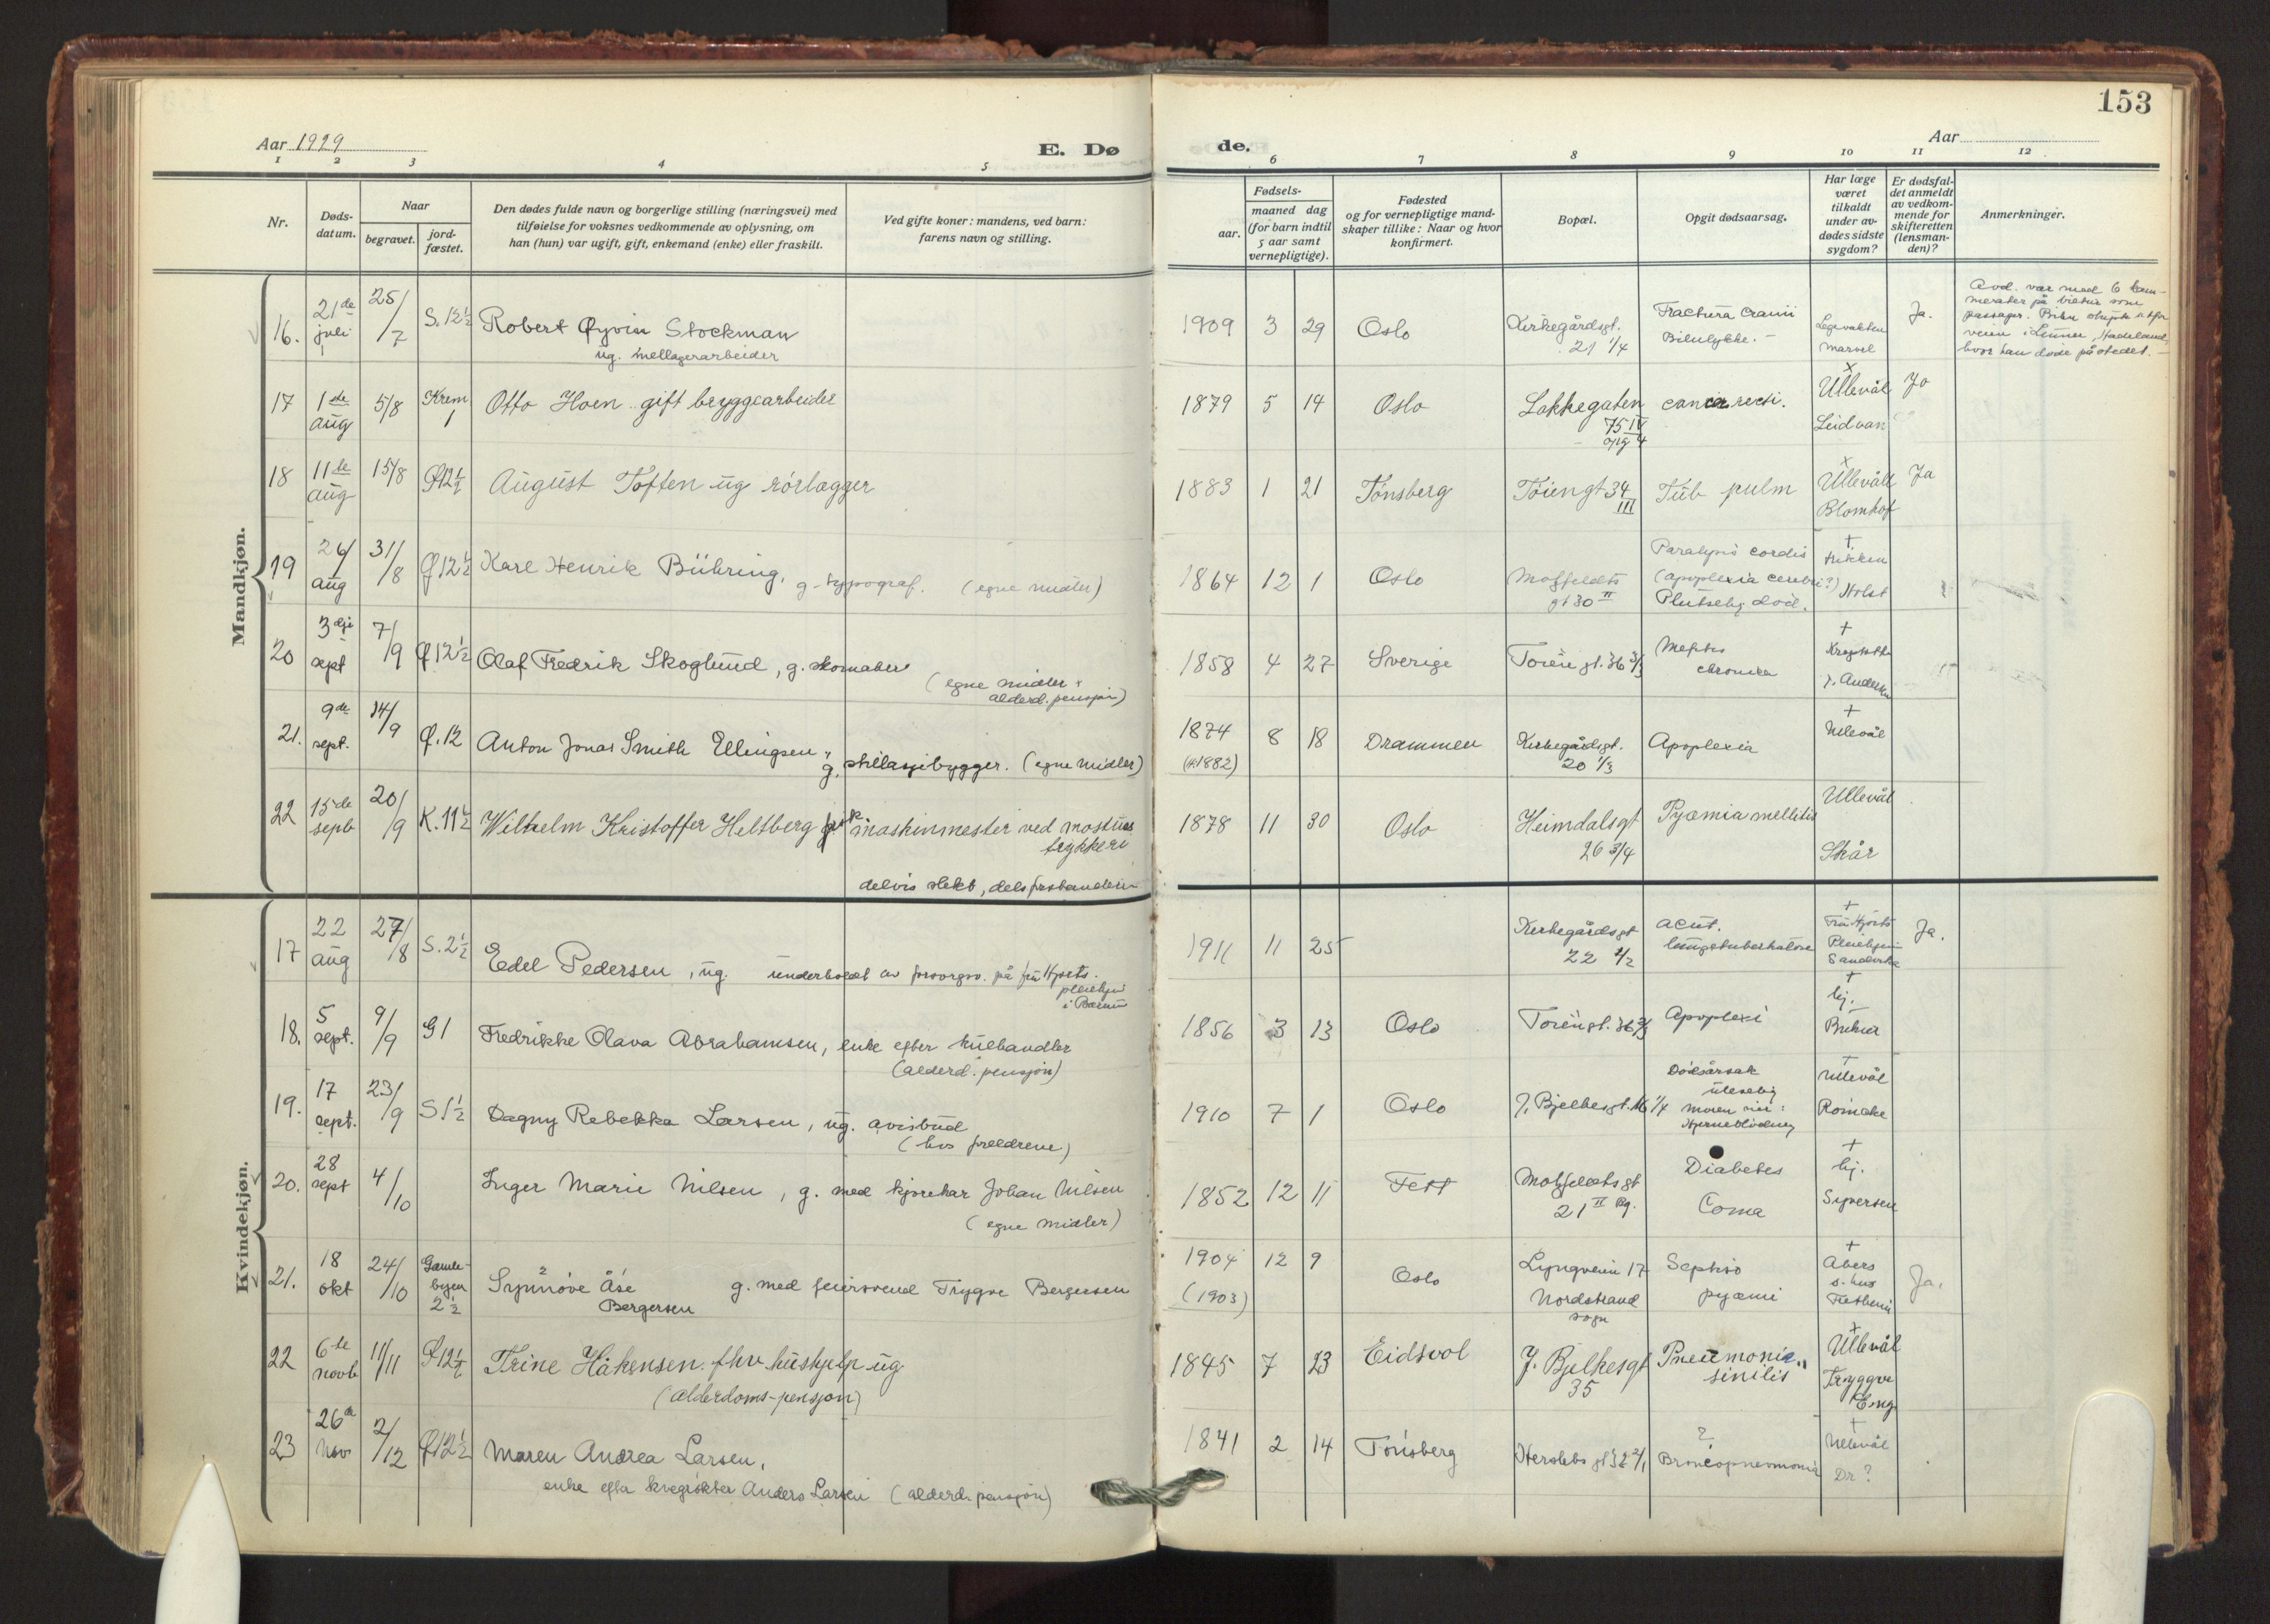 Aar 1929
E. Dø
1 2 3 4 5
Nr.
Døds-
datum.
Naar
begravet.
jord-
fæstet.
Den dødes fulde navn og borgerlige stilling (næringsvei) med
tilføielse for voksnes vedkommende av oplysning, om
han (hun) var ugift, gift, enkemand (enke) eller fraskilt.
Ved gifte koner: mandens, ved barn:
farens navn og stilling.
Mandkjøn.
16. 21de juli 25/7 S. 12½ Robert Øyvin Stockman
ug. mellagerarbeider
17 1ste aug 5/8 Krem 1 Otto Hoen gift bryggearbeider
18 11te aug 15/8 Ø12½ August Toften ug rørlægger
19 26/ aug 31/8 Ø12½ Karl Henrik Bühring, g. typograf. (egne midler)
20 3dje sept 7/9 Ø12½ Olaf Fredrik Skoglund, g. skomaker
(egne midler +
alderd. pensjon)
21. 9de sept. 14/9 Ø.12 Anton Jonas Smith Ellingsen,
g. stillasjebygger. (egne midler)
22 15de septb 20/9 K.11½ Wilhelm Kristoffer Heltberg fisk maskinmester ved
trykkeri
delvis slekt, dels
Kvindekjøn.
17 22 aug 27/8 S. 2½ Edel Pedersen, ug. underholdt av forsorgsv. på fru Hjorts
pleiehjem
i Bærum
18. 5 sept. 9/9 G1 Fredrikke Olava Abrahamsen, enke efter
(alderd. pensjon)
19. 17 sept. 23/9 S 1½ Dagny Rebekka Larsen, ug. avisbud
(hos foreldrene)
20. 28 sept 4/10 Inger Marie Nilsen, g. med kjørekar Johan Nilsen
(egne midler)
21. 18 okt 24/10 Gamle-
byen
2½ Synnøve Åse g. med feiersvend Trygve Bergersen
Bergersen
22 6te novb 11/11 Ø12½ Trine Håkensen fhv. hushjelp ug
(alderdoms-pensjon)
23 26de Nov 2/12 Ø12½ Maren Andrea Larsen,
enke efter kvegrøkter Anders Larsen (alderd. pensjon)
153
de.
Aar
6 7 8 9 10 11 12
Fødsels-
aar.
maaned dag
(for barn indtil
5 aar samt
vernepligtige).
Fødested
og for vernepligtige mand-
skaper tillike: Naar og hvor
konfirmert.
Bopæl.
Opgit dødsaarsag.
Har læge
været
tilkaldt
under av-
dødes sidste
sygdom?
Er dødsfal-
det anmeldt
av vedkom-
mende for
skifteretten
(lensman-
den)?
Anmerkninger.
1909 3 29 Oslo Kirkegårdsgt.
21 1/4
Fractura cranii
Bilulykke.
Legevakten
Ja.
Avd. var med 6 kam-
merater på biltur som
passager. Bilen utfor
veien i Lunner, Hadeland,
hvor han døde på stedet.
1879 5 14 Oslo Lakkegaten
75 IV
opg 4
cancer recti.
Ullevål
Ja
1883 1 21 Tønsberg Tøiengt 34
III
Tub pulm
Ullevål
Blomhof
Ja
1864 12 1 Oslo Motzfeldts
gt 30 II
Paralysis cordis
(apoplexia cerebri?)
Plutselig død.
Holst
1858 4 27 Sverige Tøiengt. 36 3/3
chronica
J. Andersen
1874 8 18 Drammen Kirkegårdsgt.
20 1/3
Apoplexia
Ullevål
(1882)
1878 11 30 Oslo Heimdalsgt
26 3/4
Ullevål
Skår
1911 11 25 Kirkegårdsgt
22 4/2
acut.
lungetuberkulose
Fru Hjorts
Pleiehjem
Ja.
1856 3 13 Oslo Tøiengt. 36 3/3
Apoplexi
hj.
1910 7 1 Oslo J. Bjelkesgt. 16 1/4
Dødsårsak
moren sier:
Hjerneblødning
Ullevål
1852 12 11 Fett Motzfeldtsgt
21 II
Diabetes
Coma
hj.
1904 12 9 Oslo Lyngveien 17
Nordstrand
sogn
(1903)
pyæmi
Ja.
1845 7 23 Eidsvol J. Bjelkesgt
35
Pneumonia
sinilis
Ullevål
Tryggve
Eng
1841 2 14 Tønsberg Herslebs gt 32 2/1
?
Broncopneumonia
Ullevål
Dr ?